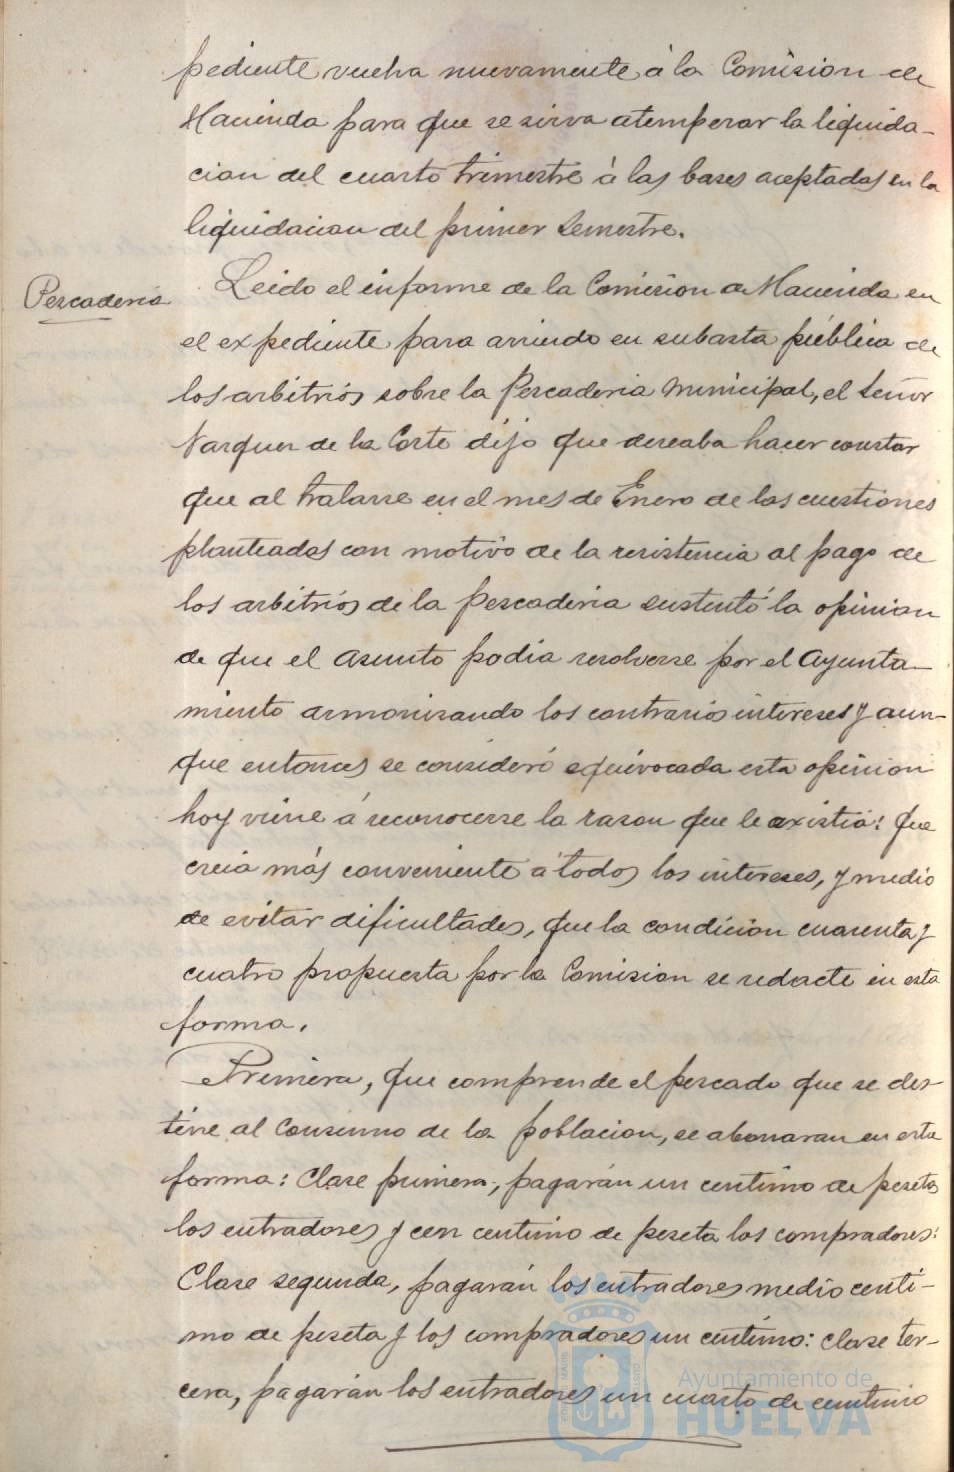 pediente vuelva nuevamente á la Comision de
Hacienda para que se sirva atemperar la liquida-
cion del cuarto trimestre á las bases aceptadas en la
liquidacion del primer semestre.
Pescaderia
Leido el informe de la Comision de Hacienda en
el expediente para arriendo en subasta pública de
los arbitrios sobre la Pescaderia Municipal, el Señor
Vazquez de la Corte dijo que deseaba hacer constar
que al tratarse en el mes de Enero de las cuestiones
planteadas con motivo de la resistencia al pago de
los arbitrios de la Pescaderia sustentó la opinion
de que el asunto podia resolverse por el Ayunta-
miento armonizando los contrarios intereses y aun-
que entonces se consideró equivocada esta opinion
hoy viene á reconocerse la razon que le existia: Que
creia más conveniente á todos los intereses, y medio
de evitar dificultades, que la condicion cuarenta y
cuatro propuesta por la Comision se redacte en esta
forma.
Primera, que comprende el pescado que se des-
tine al consumo de la poblacion, se abonaran en esta
forma: Clase primera, pagarán un centimo de peseta
los entradores y un centimo de peseta los compradores:
Clase segunda, pagarán los entradores medio centi-
mo de peseta y los compradores un centimo: clase ter-
cera, pagarán los entradores un cuarto de centimo
Ayuntamiento de
HUELVA